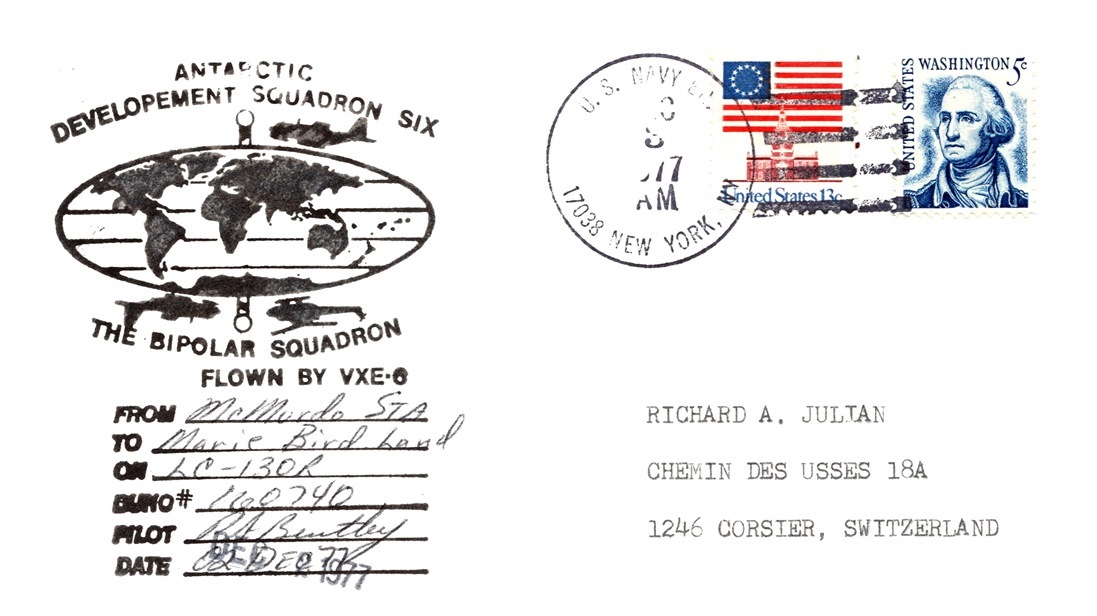 ANTARCTIC
DEVELOPEMENT SQUADRON SIX
THE BIPOLAR SQUADRON
FLOWN BY VXE-6
FROM McMurdo STA
TO Marie Bird Land
ON LC-130R
BUNO# 160740
PILOT Bentley
DATE 02 DEC 77
1977
U.S. NAVY
77
AM
17038 NEW YORK,
United States 13c
UNITED STATES
WASHINGTON 5c
RICHARD A. JULIAN
CHEMIN DES USSES 18A
1246 CORSIER, SWITZERLAND